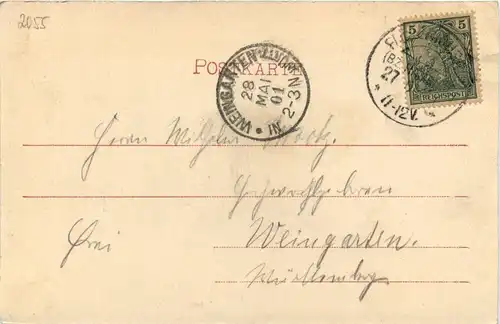 2055
5
REICHSPOST
27
11-12V.
POSTKARTE
WEINGARTEN
28
MAI
01
2-3N
IV.
Herrn Wilhelm
Hochwohlgeboren
Frei
Weingarten.
Württemberg